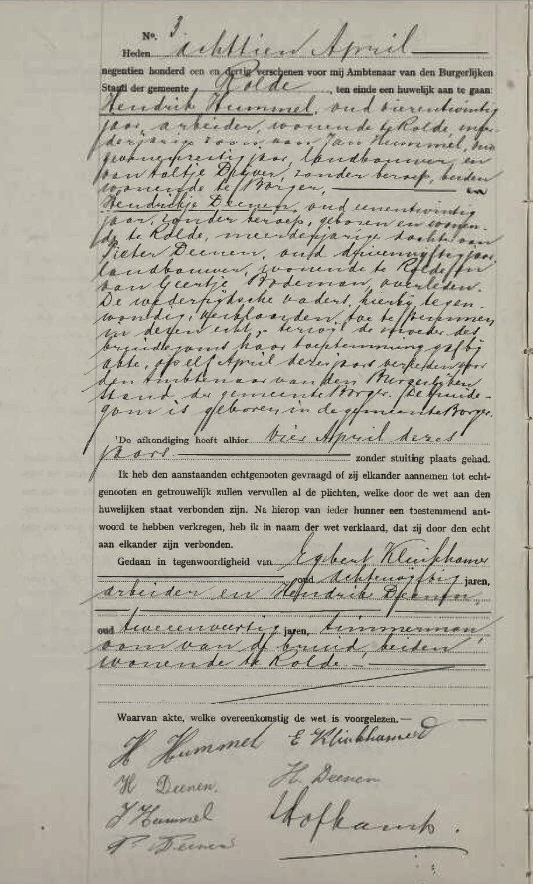 No. 3
Heden achttien April
negentien honderd een en dertig verschenen voor mij Ambtenaar van den Burgerlijken
Stand der gemeente Rolde, ten einde een huwelijk aan te gaan:
Hendrik Hummel, oud vierentwintig
jaar, arbeider, wonende te Rolde, meer-
derjarige zoon van Jan Hummel, oud
jaar, landbouwer, en
van Aaltje Drijver, zonder beroep, beiden
wonende te Borger, en
Hendrikje Deenen, oud eenentwintig
jaar, zonder beroep, geboren en wonen-
de te Rolde, meerderjarige dochter van
Pieter Deenen, oud drieenvijftig jaar,
landbouwer, wonende te Rolde en
van Geertje Bodeman, overleden.
De wederzijdsche vaders, hierbij tegen-
woordig, verklaarden toe te stemmen
in dezen echt, terwijl de moeder des
bruidegoms haar toestemming gaf bij
akte, op elf April dezes jaars verleden voor
den Ambtenaar van den Burgerlijken
Stand der gemeente Borger. De bruide-
gom is geboren in de gemeente Borger.
De afkondiging heeft alhier vier April dezes
jaars zonder stuiting plaats gehad.
Ik heb den aanstaanden echtgenooten gevraagd of zij elkander aannemen tot echt-
genooten en getrouwelijk zullen vervullen al de plichten, welke door de wet aan den
huwelijken staat verbonden zijn. Na hierop van ieder hunner een toestemmend ant-
woord te hebben verkregen, heb ik in naam der wet verklaard, dat zij door den echt
aan elkander zijn verbonden.
Gedaan in tegenwoordigheid van Egbert Klinkhamer
oud achtenvijftig jaren,
arbeider en Hendrik Deenen,
oud tweeenveertig jaren, timmerman
oom van de bruid, beiden
wonende te Rolde.
Waarvan akte, welke overeenkomstig de wet is voorgelezen.
H Hummel E Klinkhamer
H Deenen. H. Deenen
J Hummel Hofkamp.
P. Deenen